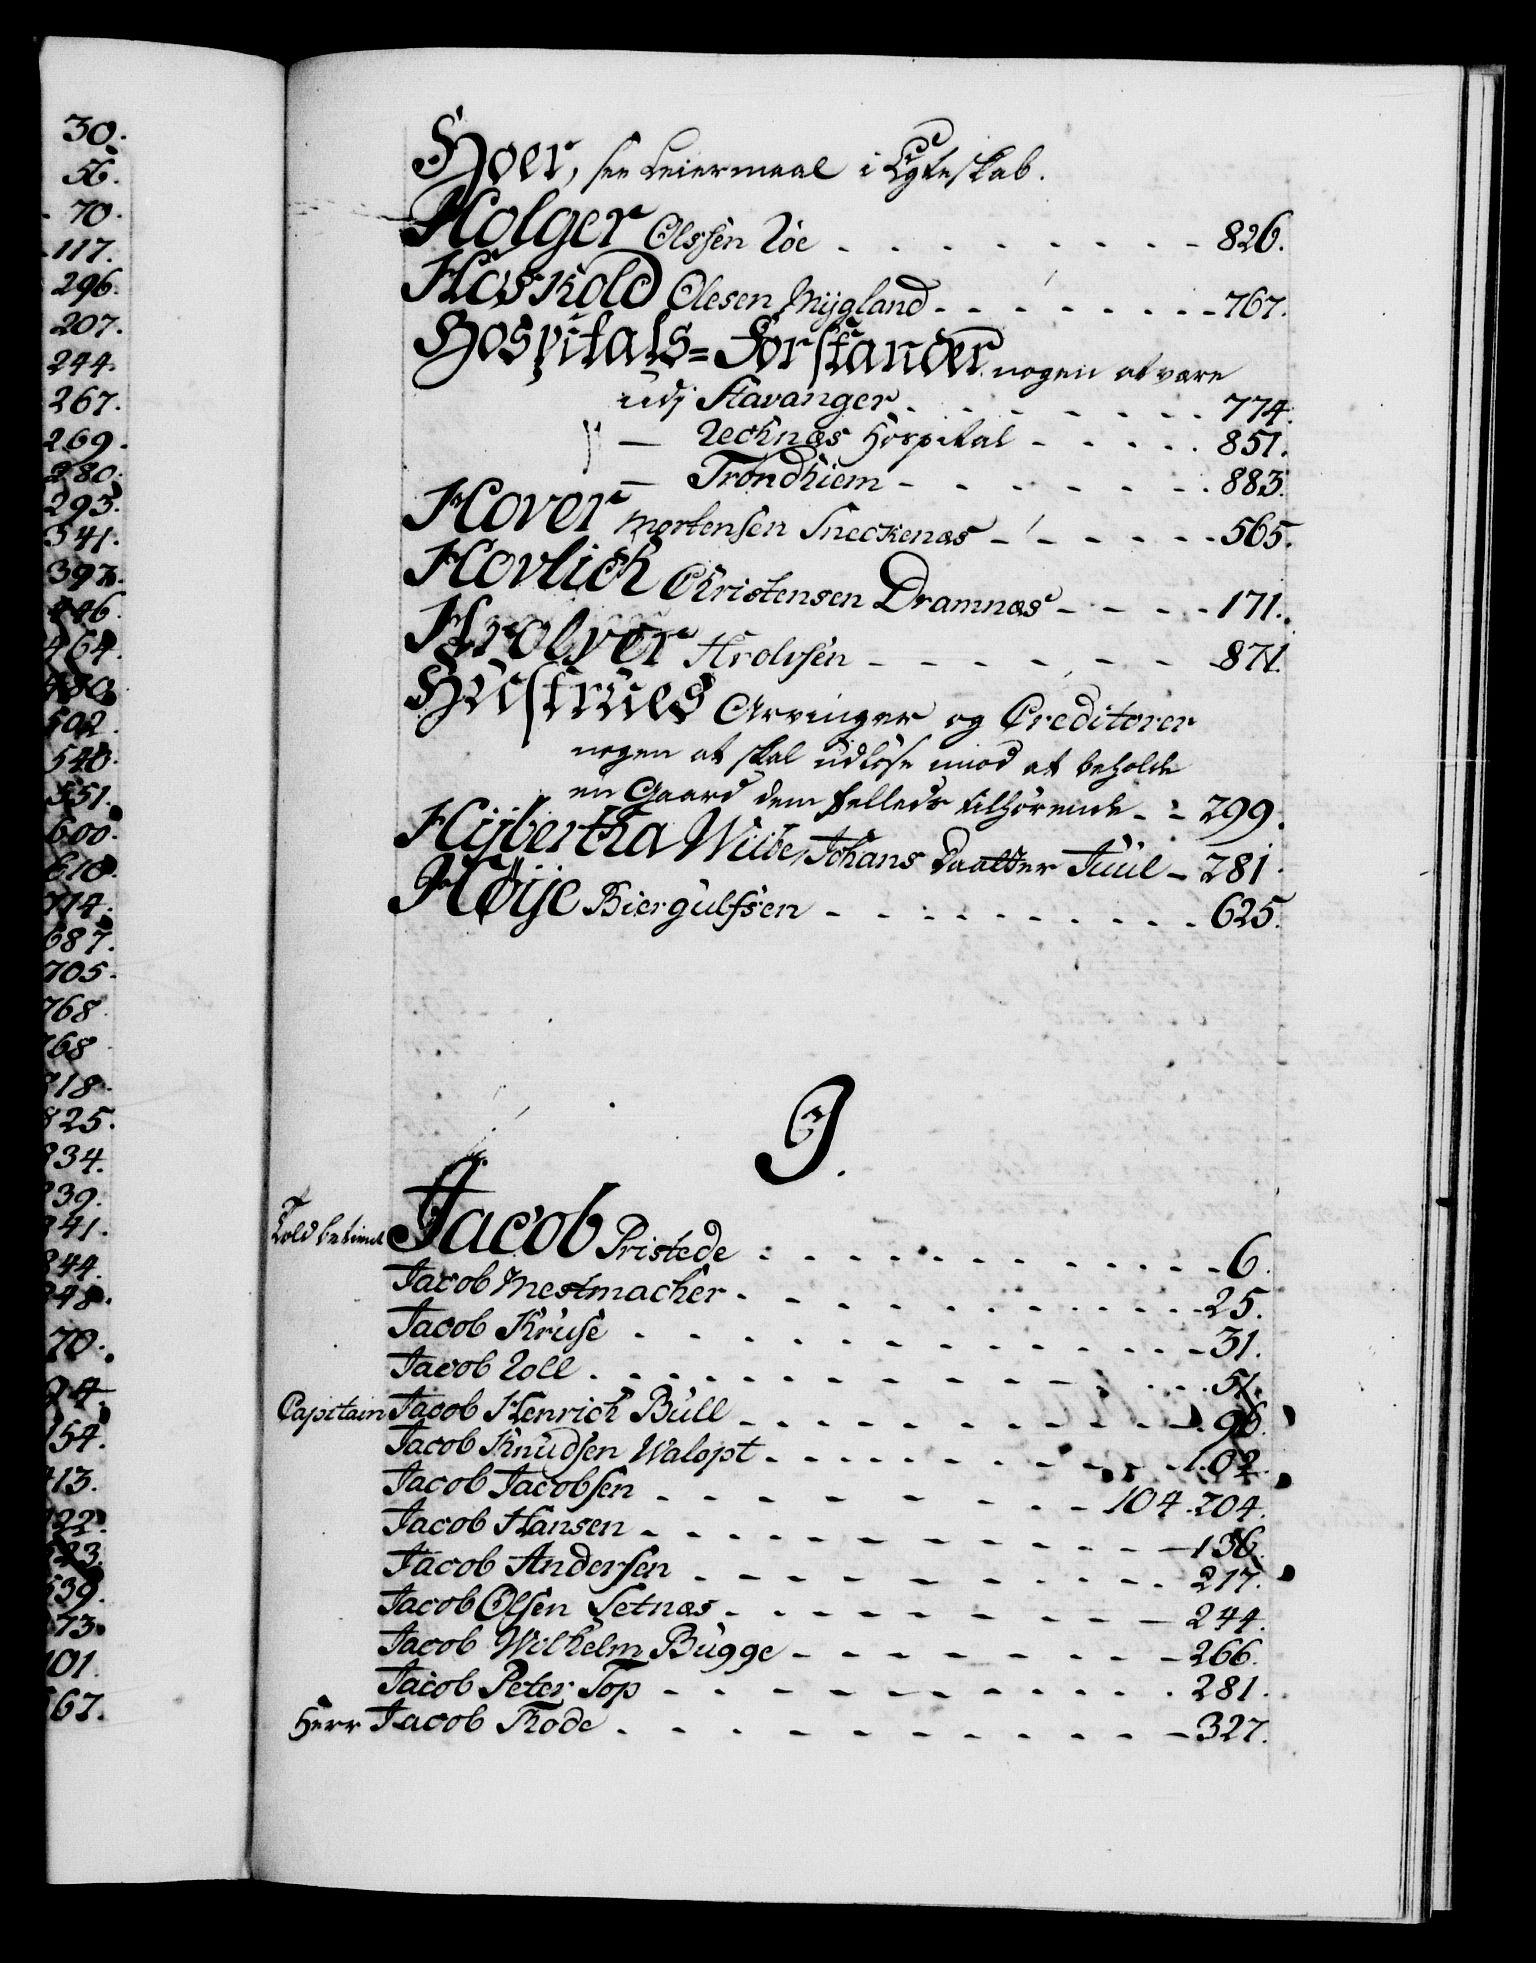 30.
56.
70.
117.
296.
207.
244.
267.
269.
280.
293.
341.
397.
446.
464.
480.
502.
540.
551.
600.
610.
714.
687.
705.
768
768
718.
825.
834.
839.
841.
844.
848.
70.
94.
154.
413.
122.
523.
539.
73.
101.
567.
Hoer, see Leiermaal i Egteskab.
Holger Olssen Loe - - - - - - - - - 826.
Hoskold Olesen Mÿgland - - - - - - - - 767.
Hospitals=Forstander nogen at være
udj Stavanger - - - - - - - 774.
" — Recknæs Hospital - - - - - 851.
— Trondhiem - - - - - - - - 883.
Hover Mortensen Sneckenæs - - - - - - 565.
Hovlich Christensen Dramnæs - - - - 171.
Hrolver Hrolvsen - - - - - - - 871.
Hustrues Arvinger og Creditorer
nogen at skal udløse imod at beholde
en Gaard dem fælleds tilhørende - - 299.
Hÿbertha Wilbe, Johans Daatter Juul - 281.
Høÿe Biergulfsen - - - - - - - - - - 625.
J.
Told betient Jacob Pristede - - - - - - - - - - - 6.
Jacob Mestmacher - - - - - - - - - - - 25.
Jacob Kruse - - - - - - - - - - - - 31.
Jacob Coll - - - - - - - - - - - - 51.
Capitain Jacob Henrich Bull - - - - - - - - - - 96.
Jacob Knudsen Walopt - - - - - - - - - 102.
Jacob Jacobsen - - - - - - - - - 104. 204.
Jacob Hansen - - - - - - - - - - - 156.
Jacob Andersen - - - - - - - - - - 217.
Jacob Olsen Setnæs - - - - - - - - - 244.
Jacob Wilhelm Bugge - - - - - - - - 266.
Jacob Peter Top - - - - - - - - - - 281.
Herr Jacob Rode - - - - - - - - - - - 327.